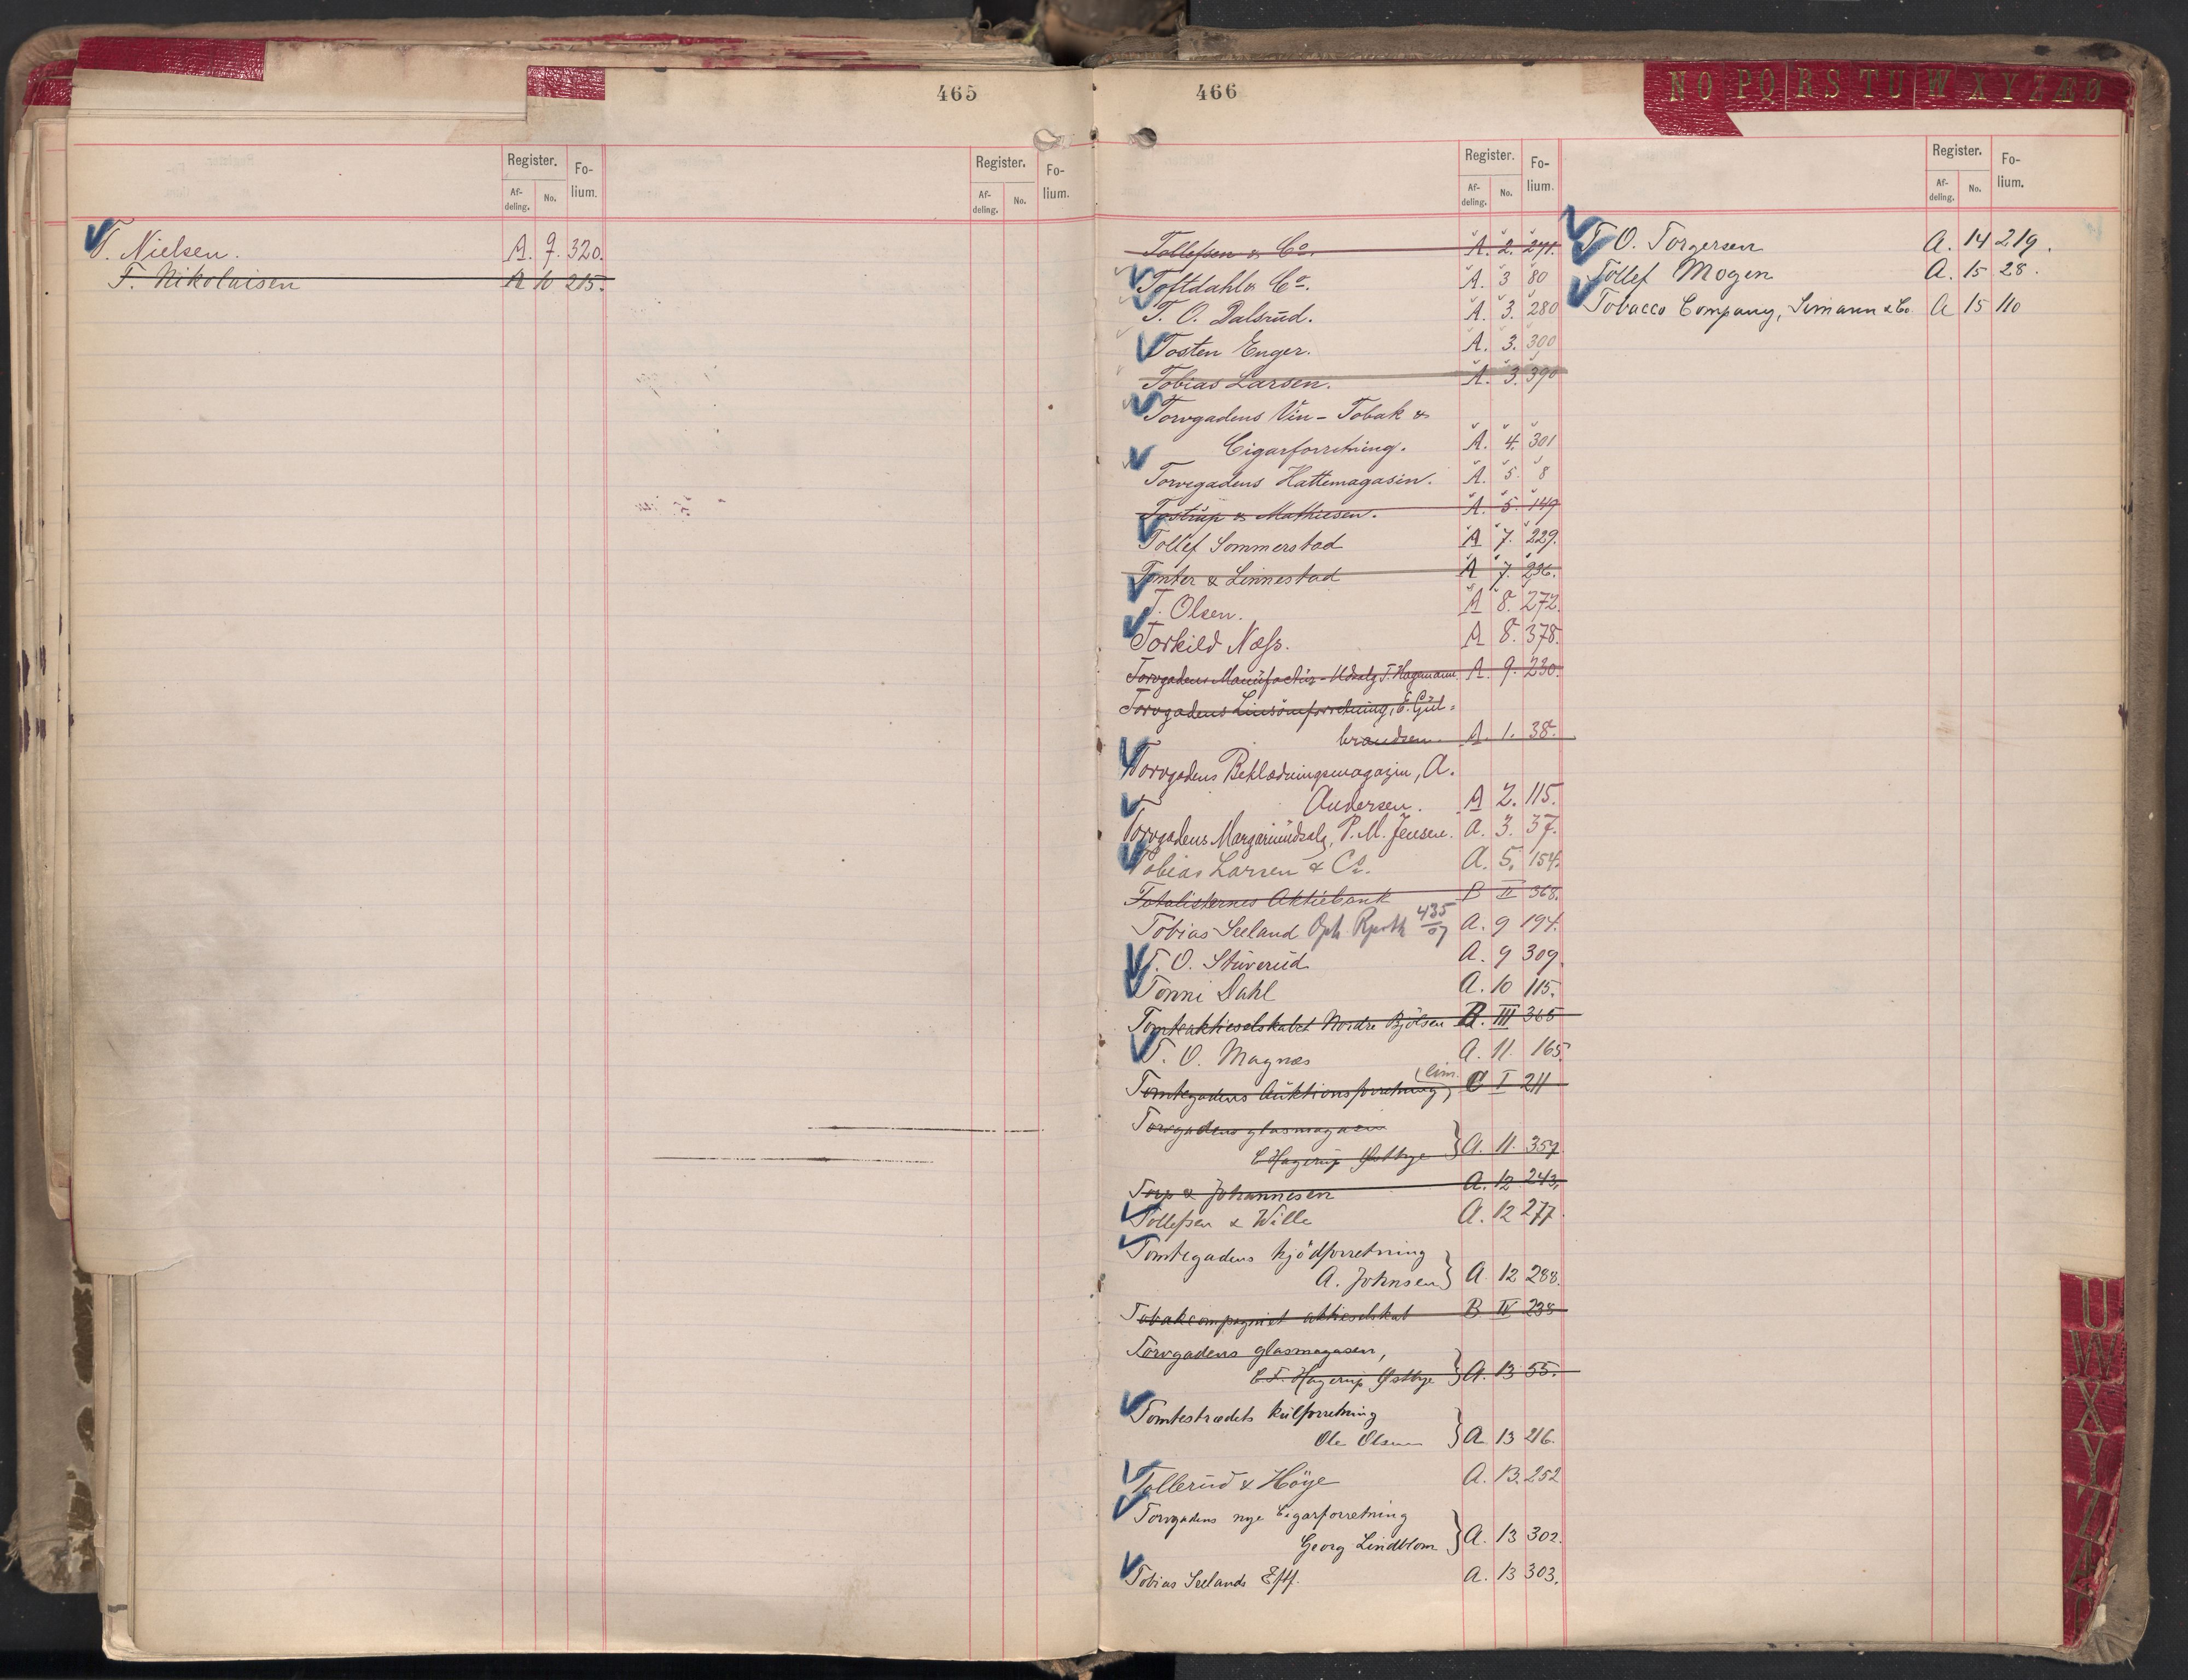 465
Register.
Fo-
lium.
Af-
deling.
No.
Register.
Fo-
lium.
Af-
deling.
No.
T. Nielsen. A. 9. 320.
T. Nikolaisen A 10 215.
466
Register.
Fo-
lium.
Af-
deling.
No.
Register.
Fo-
lium.
Af-
deling.
No.
N O P Q R S T U W X Y Z Æ Ø
Tollefsen & Co. A. 2. 271.
Toftdahl & Co. A. 3 80
T. O. Dalsrud. A. 3. 280
Tosten Enger. A. 3. 300
Tobias Larsen. A. 3. 390
Torvgadens Vin- Tobak &
Cigarforretning. A. 4. 301
Torvegadens Hattemagasin. A. 5. 8
Tostrup & Mathiesen. A. 5. 149
Tollef Sommerstad A 7. 229.
Tomter & Linnestad A 7. 236.
T. Olsen. A 8. 272.
Torkild Næss. A 8. 378.
Torvgadens Manufactur-Udsalg T. Hagemann. A. 9. 230.
Torvgadens Linsömforretning, E. Gul-
brandsen. A. 1. 38.
Torvgadens Beklædningsmagazin, A.
Andersen. A 2. 115.
Torvgadens Margarinudsalg, P. M. Jensen. A. 3. 37.
Tobias Larsen & Co. A. 5. 154.
Totalisternes Aktiebank B II 368.
Tobias Seeland Oph. 435/07 A. 9 194.
T. O. Stuverud A. 9 309.
Tonni Dahl A. 10 115.
Tomteaktieselskabet Nordre Bjölsen B. III 365
T. O. Magnæs A. 11. 165.
Tomtegadens Auktionsforretning, (lim. C I 211
Torvgadens glasmagasin
C Hagerup Østbye } A. 11. 357
Torp & Johannesen A. 12 243,
Tollefsen & Wille A. 12 277.
Tomtegadens kjödforretning
A. Johnsen } A. 12 288.
Tobakcompagniet aktieselskab B IV 238
Torvgadens glasmagasin,
C. F. Hagerup Østbye } A. 13 55.
Tomtestrædets kulforretning
Ole Olsen } A 13 216.
Tollerud & Höye A. 13. 252
Torvgadens nye Cigarforretning
Georg Lindblom } A. 13 302.
Tobias Seelands Eftf. A. 13 303.
T. O. Torgersen A. 14 219.
Tollef Mogen A. 15 28.
Tobacco Company, Simann & Co. A 15 110
U
W
X
Y
Z
Æ
Ø